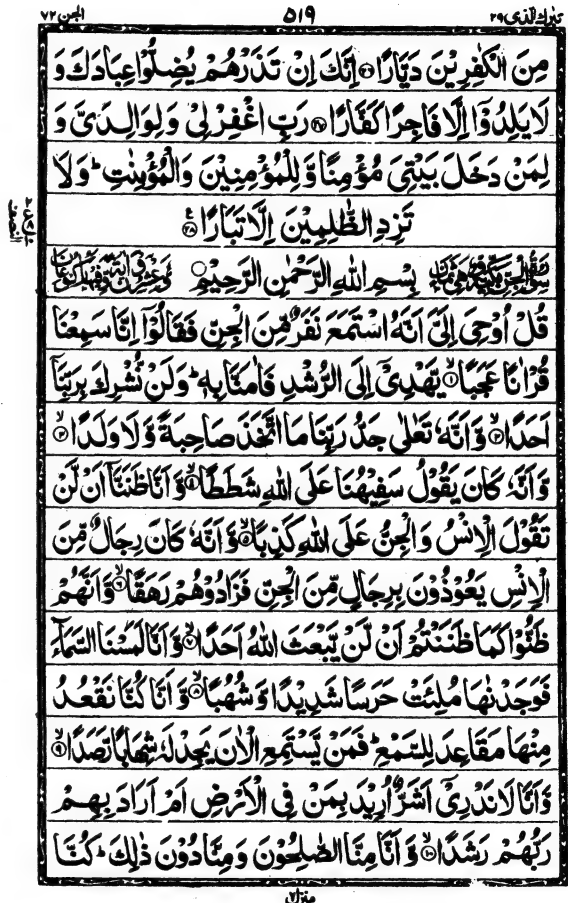 تبٰرك الذی ٢٩ ٥١٩ الجن ٧٢
مِنَ الْكٰفِرِيْنَ دَيَّارًا ﴿٢٦﴾ اِنَّكَ اِنْ تَذَرْهُمْ يُضِلُّوْا عِبَادَكَ وَ
لَا يَلِدُوْۤا اِلَّا فَاجِرًا كَفَّارًا ﴿٢٧﴾ رَبِّ اغْفِرْ لِيْ وَ لِوَالِدَيَّ وَ
لِمَنْ دَخَلَ بَيْتِيَ مُؤْمِنًا وَّ لِلْمُؤْمِنِيْنَ وَ الْمُؤْمِنٰتِ ؕ وَ لَا
تَزِدِ الظّٰلِمِيْنَ اِلَّا تَبَارًا ﴿٢٨﴾
بِسْمِ اللّٰهِ الرَّحْمٰنِ الرَّحِيْمِ
قُلْ اُوْحِيَ اِلَيَّ اَنَّهُ اسْتَمَعَ نَفَرٌ مِّنَ الْجِنِّ فَقَالُوْۤا اِنَّا سَمِعْنَا
قُرْاٰنًا عَجَبًا ۙ﴿١﴾ يَّهْدِيْۤ اِلَى الرُّشْدِ فَاٰمَنَّا بِهٖ ؕ وَ لَنْ نُّشْرِكَ بِرَبِّنَاۤ
اَحَدًا ۙ﴿٢﴾ وَّ اَنَّهٗ تَعٰلٰى جَدُّ رَبِّنَا مَا اتَّخَذَ صَاحِبَةً وَّ لَا وَلَدًا ۙ﴿٣﴾
وَّ اَنَّهٗ كَانَ يَقُوْلُ سَفِيْهُنَا عَلَى اللّٰهِ شَطَطًا ۙ﴿٤﴾ وَّ اَنَّا ظَنَنَّاۤ اَنْ لَّنْ
تَقُوْلَ الْاِنْسُ وَ الْجِنُّ عَلَى اللّٰهِ كَذِبًا ۙ﴿٥﴾ وَّ اَنَّهٗ كَانَ رِجَالٌ مِّنَ
الْاِنْسِ يَعُوْذُوْنَ بِرِجَالٍ مِّنَ الْجِنِّ فَزَادُوْهُمْ رَهَقًا ۙ﴿٦﴾ وَّ اَنَّهُمْ
ظَنُّوْا كَمَا ظَنَنْتُمْ اَنْ لَّنْ يَّبْعَثَ اللّٰهُ اَحَدًا ۙ﴿٧﴾ وَّ اَنَّا لَمَسْنَا السَّمَآءَ
فَوَجَدْنٰهَا مُلِئَتْ حَرَسًا شَدِيْدًا وَّ شُهُبًا ۙ﴿٨﴾ وَّ اَنَّا كُنَّا نَقْعُدُ
مِنْهَا مَقَاعِدَ لِلسَّمْعِ ؕ فَمَنْ يَّسْتَمِعِ الْاٰنَ يَجِدْ لَهٗ شِهَابًا رَّصَدًا ۙ﴿٩﴾
وَّ اَنَّا لَا نَدْرِيْۤ اَشَرٌّ اُرِيْدَ بِمَنْ فِي الْاَرْضِ اَمْ اَرَادَ بِهِمْ
رَبُّهُمْ رَشَدًا ۙ﴿١٠﴾ وَّ اَنَّا مِنَّا الصّٰلِحُوْنَ وَ مِنَّا دُوْنَ ذٰلِكَ ؕ كُنَّا